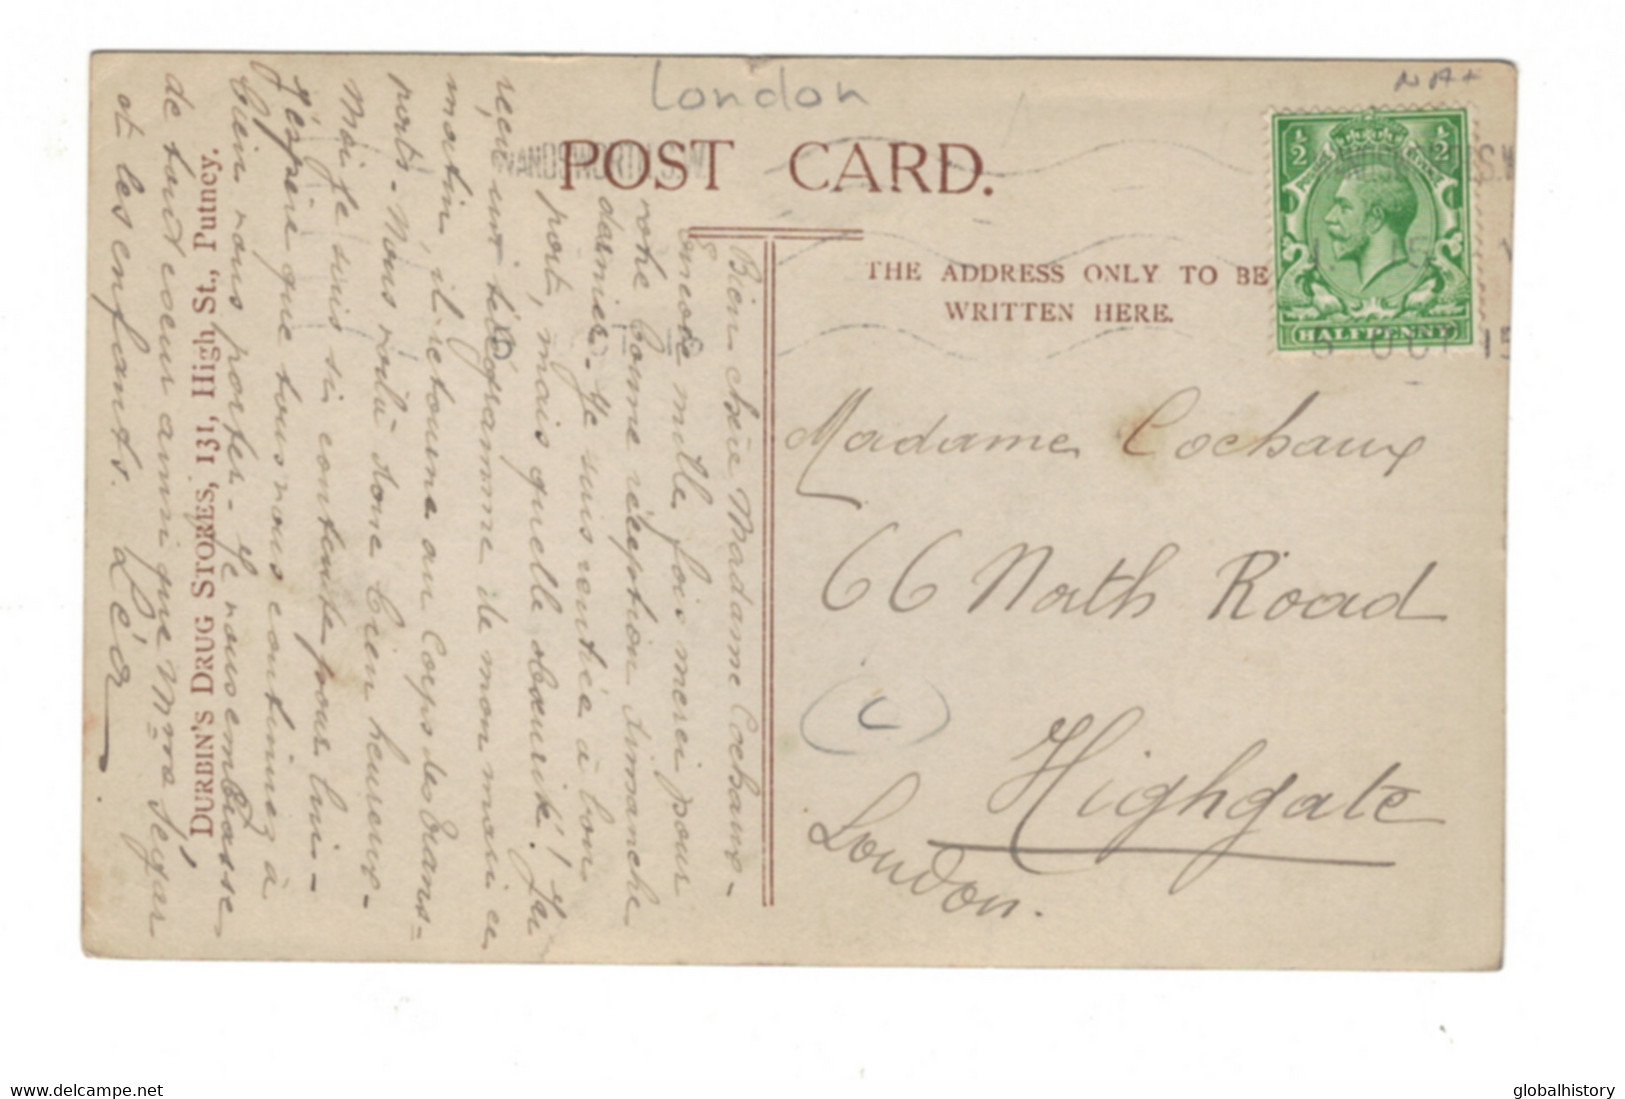 London
N A+
POST CARD.
WANDSWORTH S.W.
THE ADDRESS ONLY TO BE
WRITTEN HERE.
½ ½
HALFPENNY
OCT 15
Madame Cochaux
66 North Road
Highgate
London.
C
Bien chère Madame Cochaux -
Encore mille fois merci pour
votre bonne réception dimanche
dernier. Je suis rentrée à bon
port, mais quelle obscurité! J'ai
reçu un télégramme de mon mari ce
matin, il retourne au Corps des Trans-
ports - Nous voilà donc bien heureux -
Moi je suis si contente pour lui -
J'espère que tous vous continuez à
bien vous porter. Je vous embrasse
de tout coeur ainsi que Mme Seger
et les enfants. Léa
DURBIN'S DRUG STORES, 131, High St., Putney.
delcampe.net
globalhistory